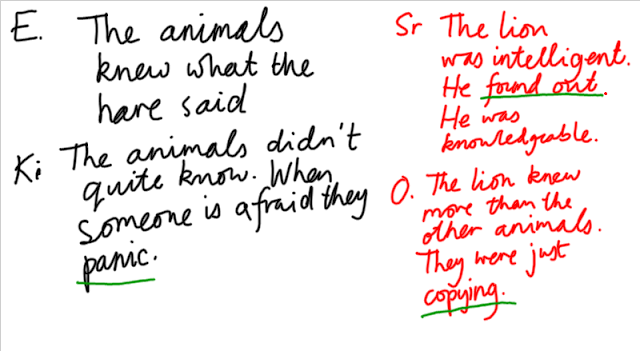 E. The animals
knew what the
hare said
Ki The animals didn't
quite know. When
someone is afraid they
panic.
Sr The lion
was intelligent.
He found out.
He was
knowledgable.
O. The lion knew
more than the
other animals.
They were just
copying.